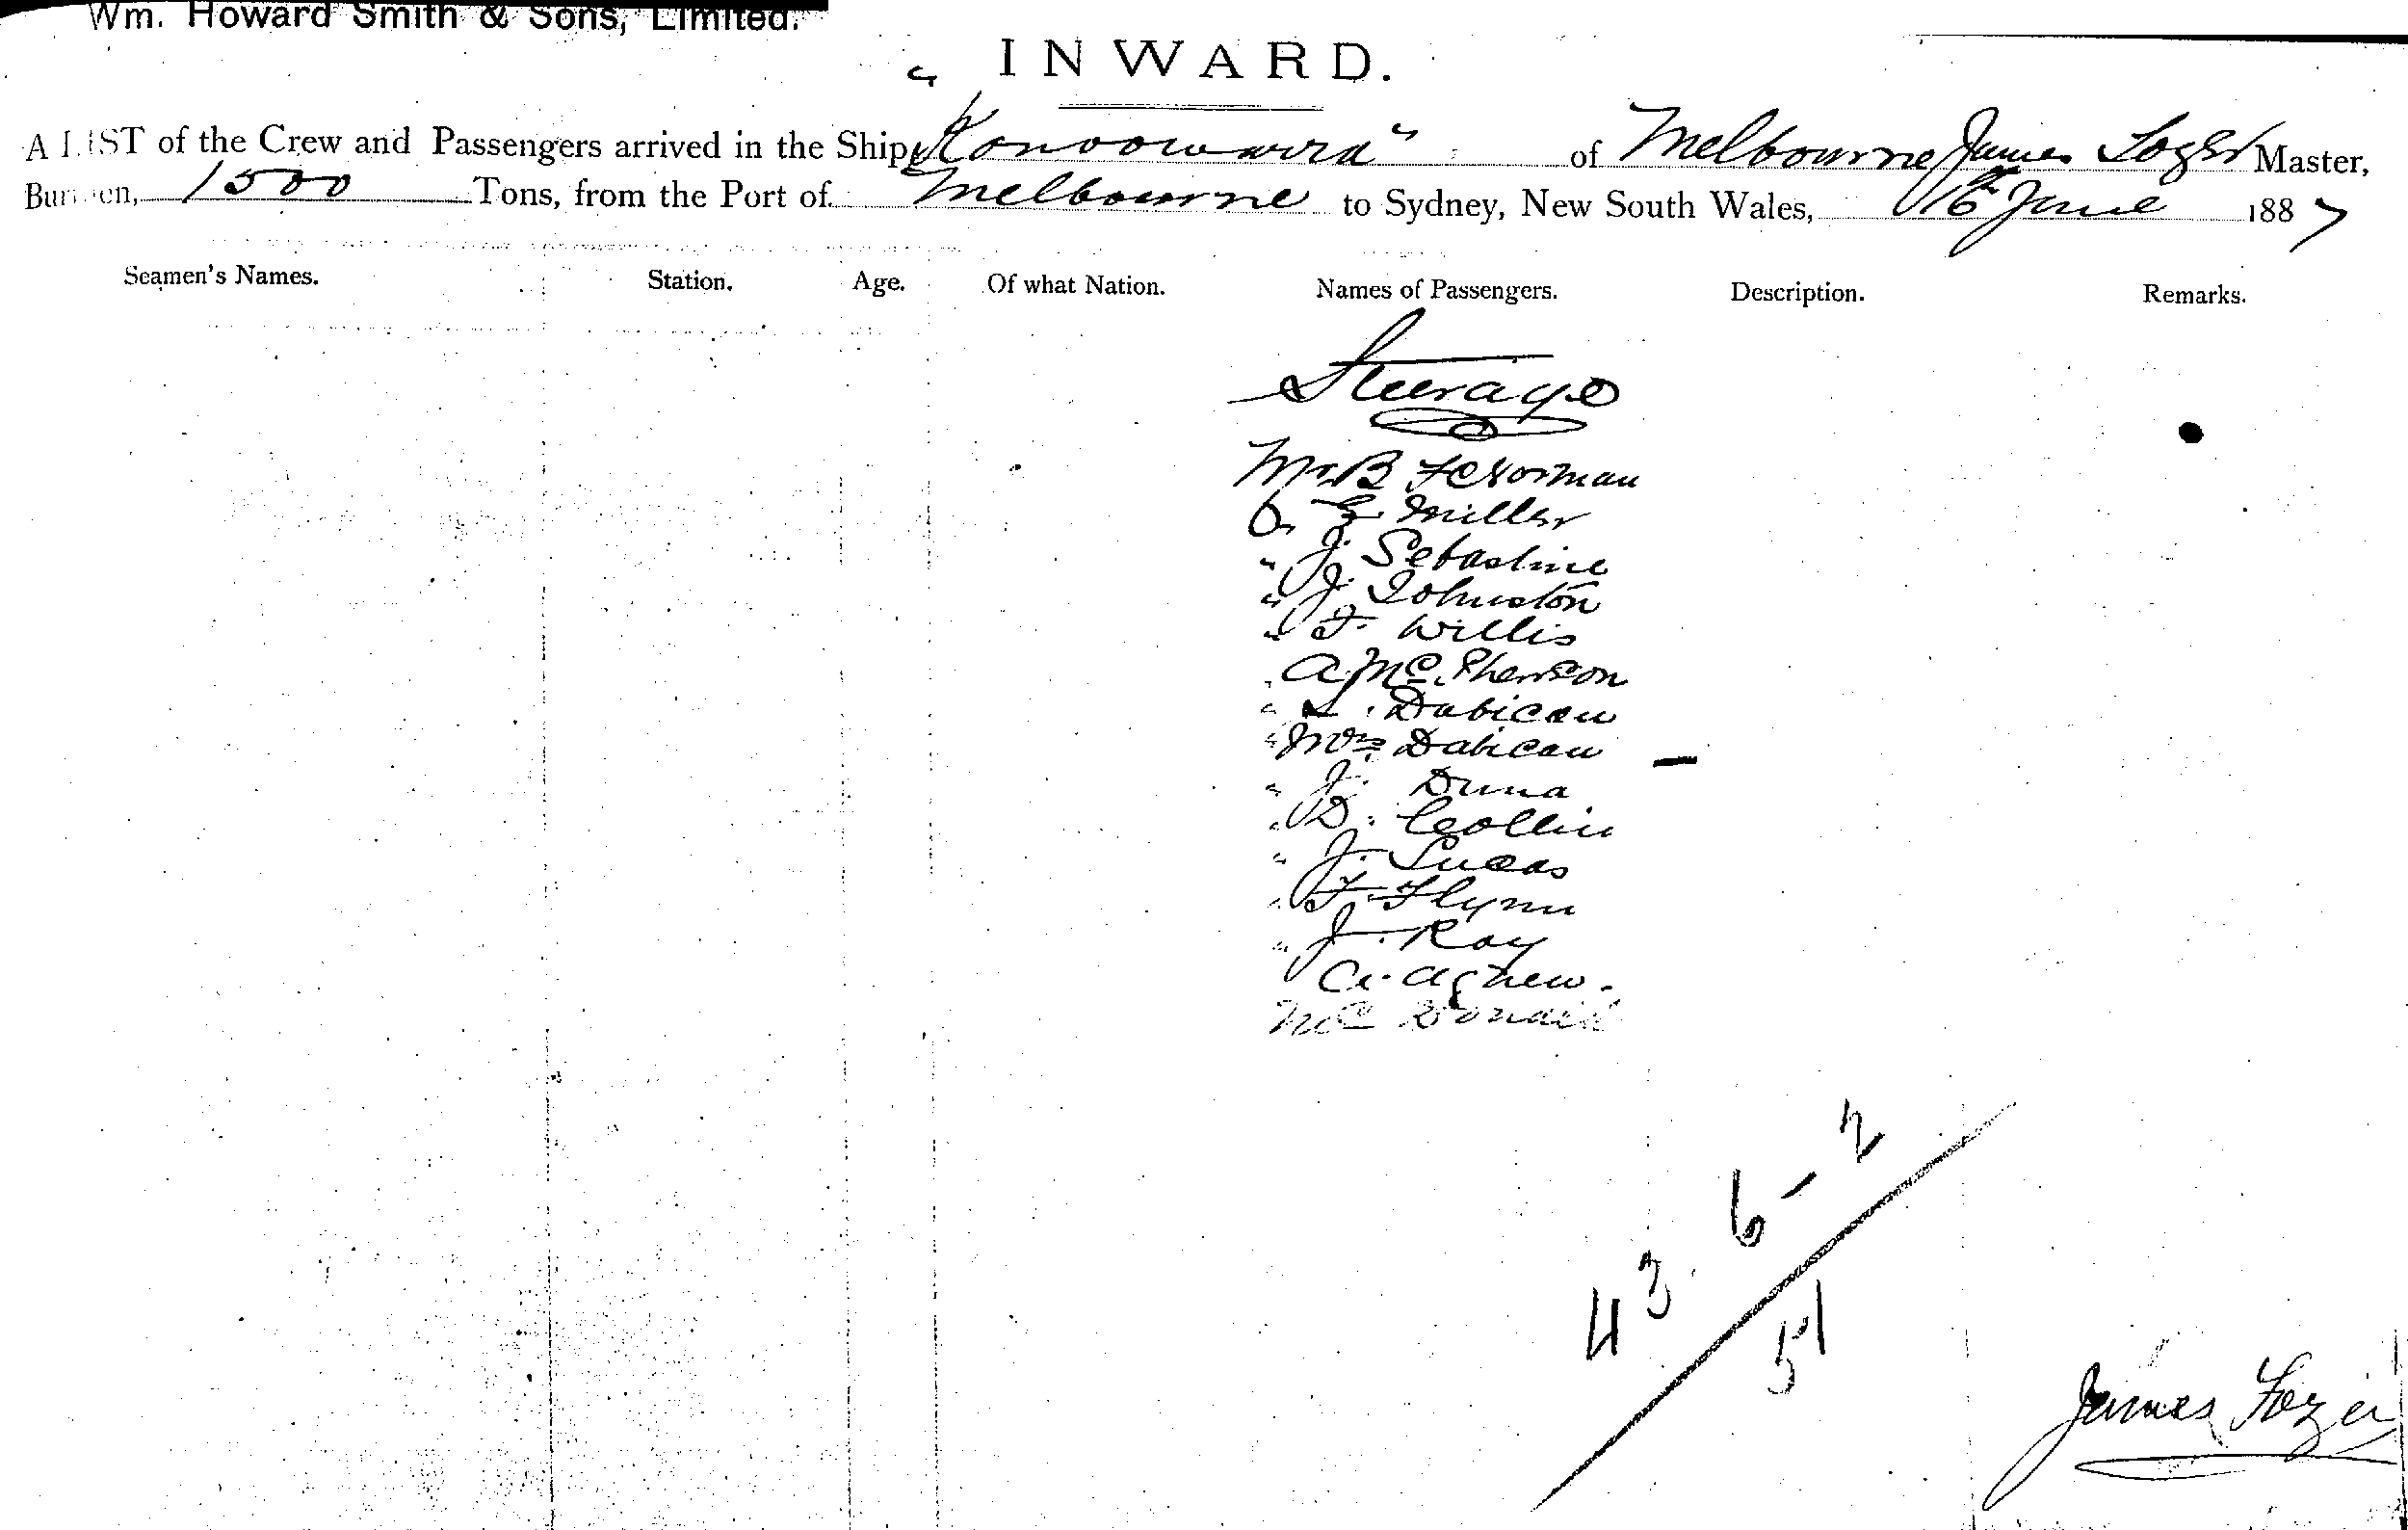 Wm. Howard Smith & Sons, Limited.
INWARD.
A LIST of the Crew and Passengers arrived in the Ship "Konoowarra" of Melbourne James Master,
Burthen, 1500 Tons, from the Port of Melbourne to Sydney, New South Wales, 16th June 1887
Seamen's Names. Station. Age. Of what Nation. Names of Passengers. Description. Remarks.
Steerage
Mr. B
E. Miller
" J. Sebastine
" J. Johnston
" F. Willis
A. McPherson
" Dabican
" Mrs Dabican
" J. Duna
" D. Collin
" J. Lucas
" F. Flynn
" J. Roy
A. Agnew.
Mc Donald
43. 6 - 2
51
James